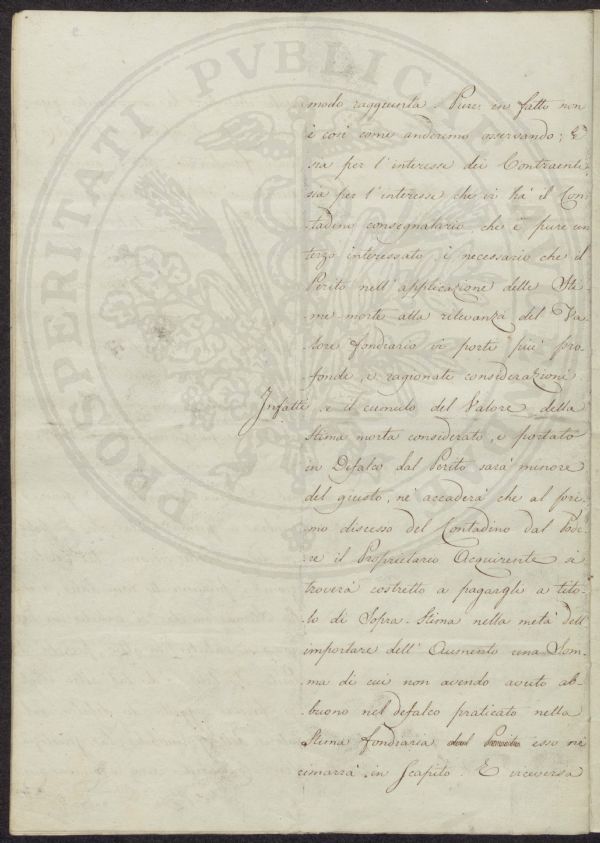 PROSPERITATI PVBLICAE
modo raggiunta. Pure in fatto non
è così come anderemo osservando; E
sia per l'interesse dei Contraenti,
sia per l'interesse che vi hà il Con-
tadino consegnatario, che è pure un
terzo interessato, è necessario che il
Perito nell'applicazione delle Sti-
me-morte alla rilevanza del Va-
lore fondiario vi porti più pro-
fonde, e ragionate considerazioni
Infatti, se il cumulo del Valore della
Stima morta considerato, e portato
in Difalco dal Perito sarà minore
del giusto, ne accaderà che al pri-
mo discesso del Contadino dal Pode-
re il Proprietario Acquirente si
troverà costretto a pagargli a tito-
lo di Sopra-Stima nella metà dell'
importare dell'Aumento una Som-
ma di cui non avendo avuto ab-
buono nel defalco praticato nella
Stima fondiaria esso ne
rimarrà in Scapito. E viceversa